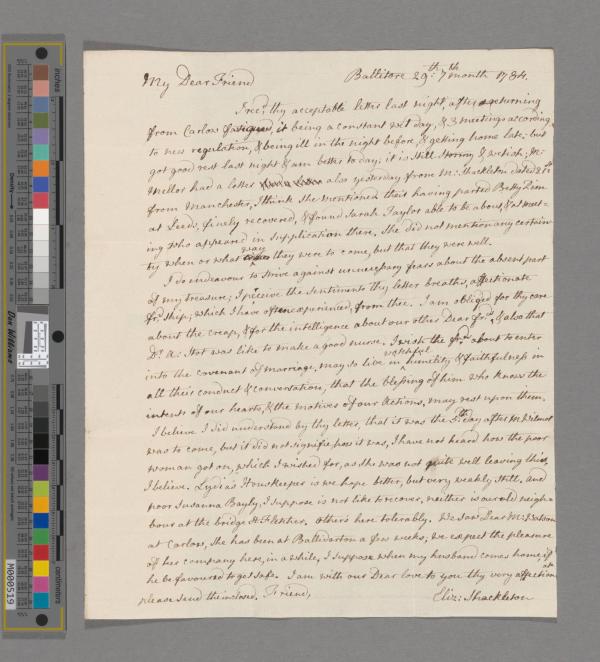 My Dear Friend Ballitore 29th. 7th month 1784.
I recd. thy acceptable letter last night, after returning
from Carlow fatigued, it being a constant wet day, & 3 meetings according
to new regulation, & being ill in the night before, & getting home late; but
got good rest last night & am better to day; it is still stormy & wetish; M:
Mellor had a letter also yesterday from M: Shackleton dated 21st
from Manchester, I think she mentioned their having parted Betty
at Leeds, finely recovered, & found Sarah Taylor able to be about, & at meet-
ing who appeared in supplication there, she did not mention any certain-
ty when or what way they were to come, but that they were well.
I do endeavour to strive against unnecessary fears about the absent part
of my treasure; I perceive the sentiments thy letter breaths, affectionate
frdship, which I have often experienced, from thee. I am obliged for thy care
about the creap, & for the intelligence about our other Dear frds. & also that
Dr. A: Stot was like to make a good nurse. I wish the frds. about to enter
into the covenant of marriage, may so live in watchful humility, & faithfulness in
all their conduct & conversation, that the blessing of him who knows the
intents of our hearts, & the motives of our Actions, may rest upon them.
I believe I did understand by thy letter, that it was the 5th day after M: Wilmot
was to come, but it did not signifie, how it was, I have not heard how the poor
woman got on, which I wished for, as she was not quite well leaving this,
I believe. Lydia's Housekeeper is we hope better, but very weakly still, and
poor Susanna Bayly, I suppose is not like to recover, neither is our old neigh-
bour at the bridge H: Fletcher. Others here tolerably. We saw Dear M: Watson
at Carlow, she has been at Ballidarton a few weeks, we expect the pleasure
of her company here, in a while, I suppose when my husband comes home, if
he be favoured to get safe. I am with our Dear love to you thy very affectionate
please send the inclosed. Friend, Eliz: Shackleton
inches
centimeters
Don Williams
M000519